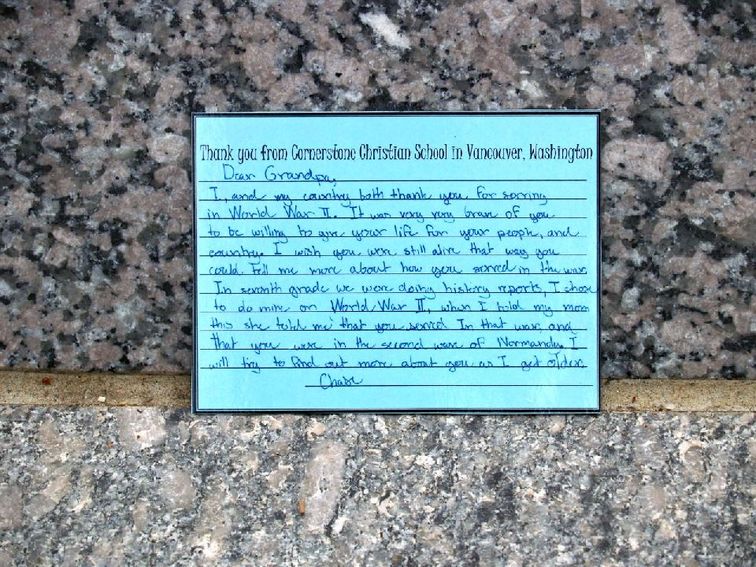 Thank you from Cornerstone Christian School in Vancouver, Washington
Dear Grandpa,
I, and my country both thank you for serving
in World War II. It was very very brave of you
to be willing to give your life for your people, and
country. I wish you were still alive that way you
could tell me more about how you served in the war.
In seventh grade we were doing history reports, I chose
to do mine on World War II, when I told my mom
this she told me that you served In that war, and
that you were in the second wave of Normandy. I
will try to find out more about you as I get older.
Chase